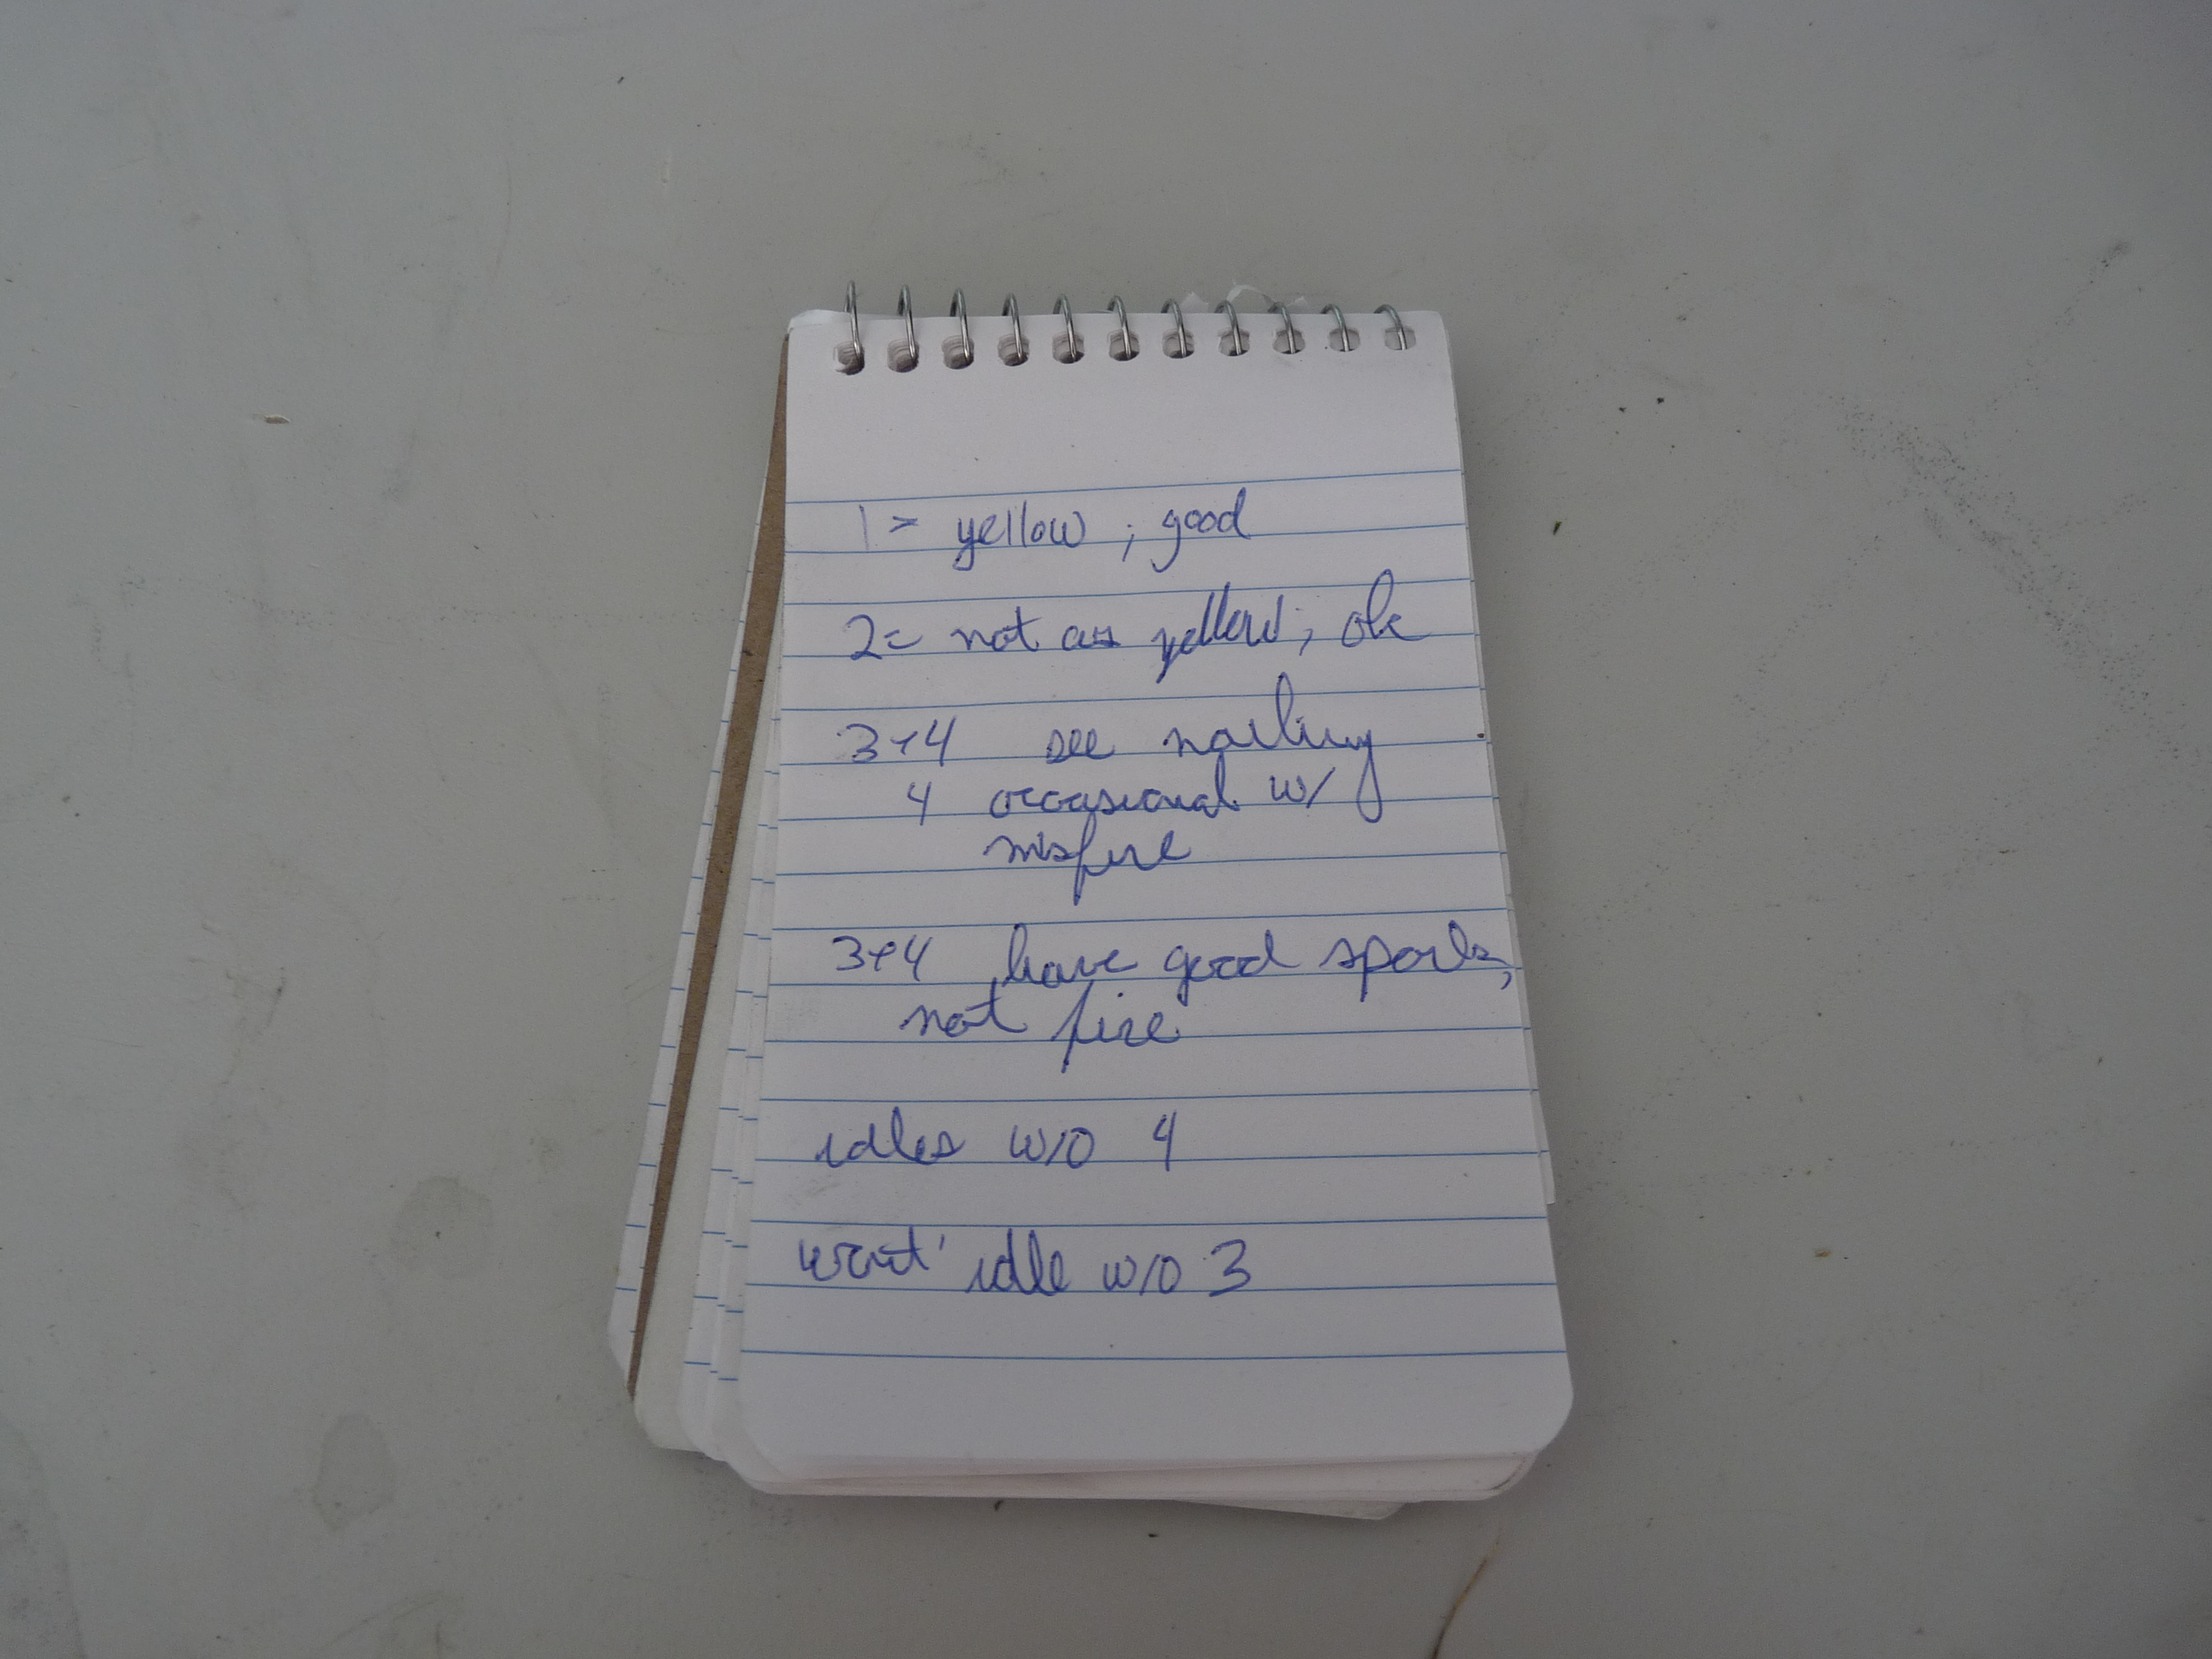 1 = yellow ; good
2 = not as yellow; ok
3+4 see nothing
4 occasional w/
misfire
3+4 have good spark,
not fire
idles w/o 4
wont' idle w/o 3